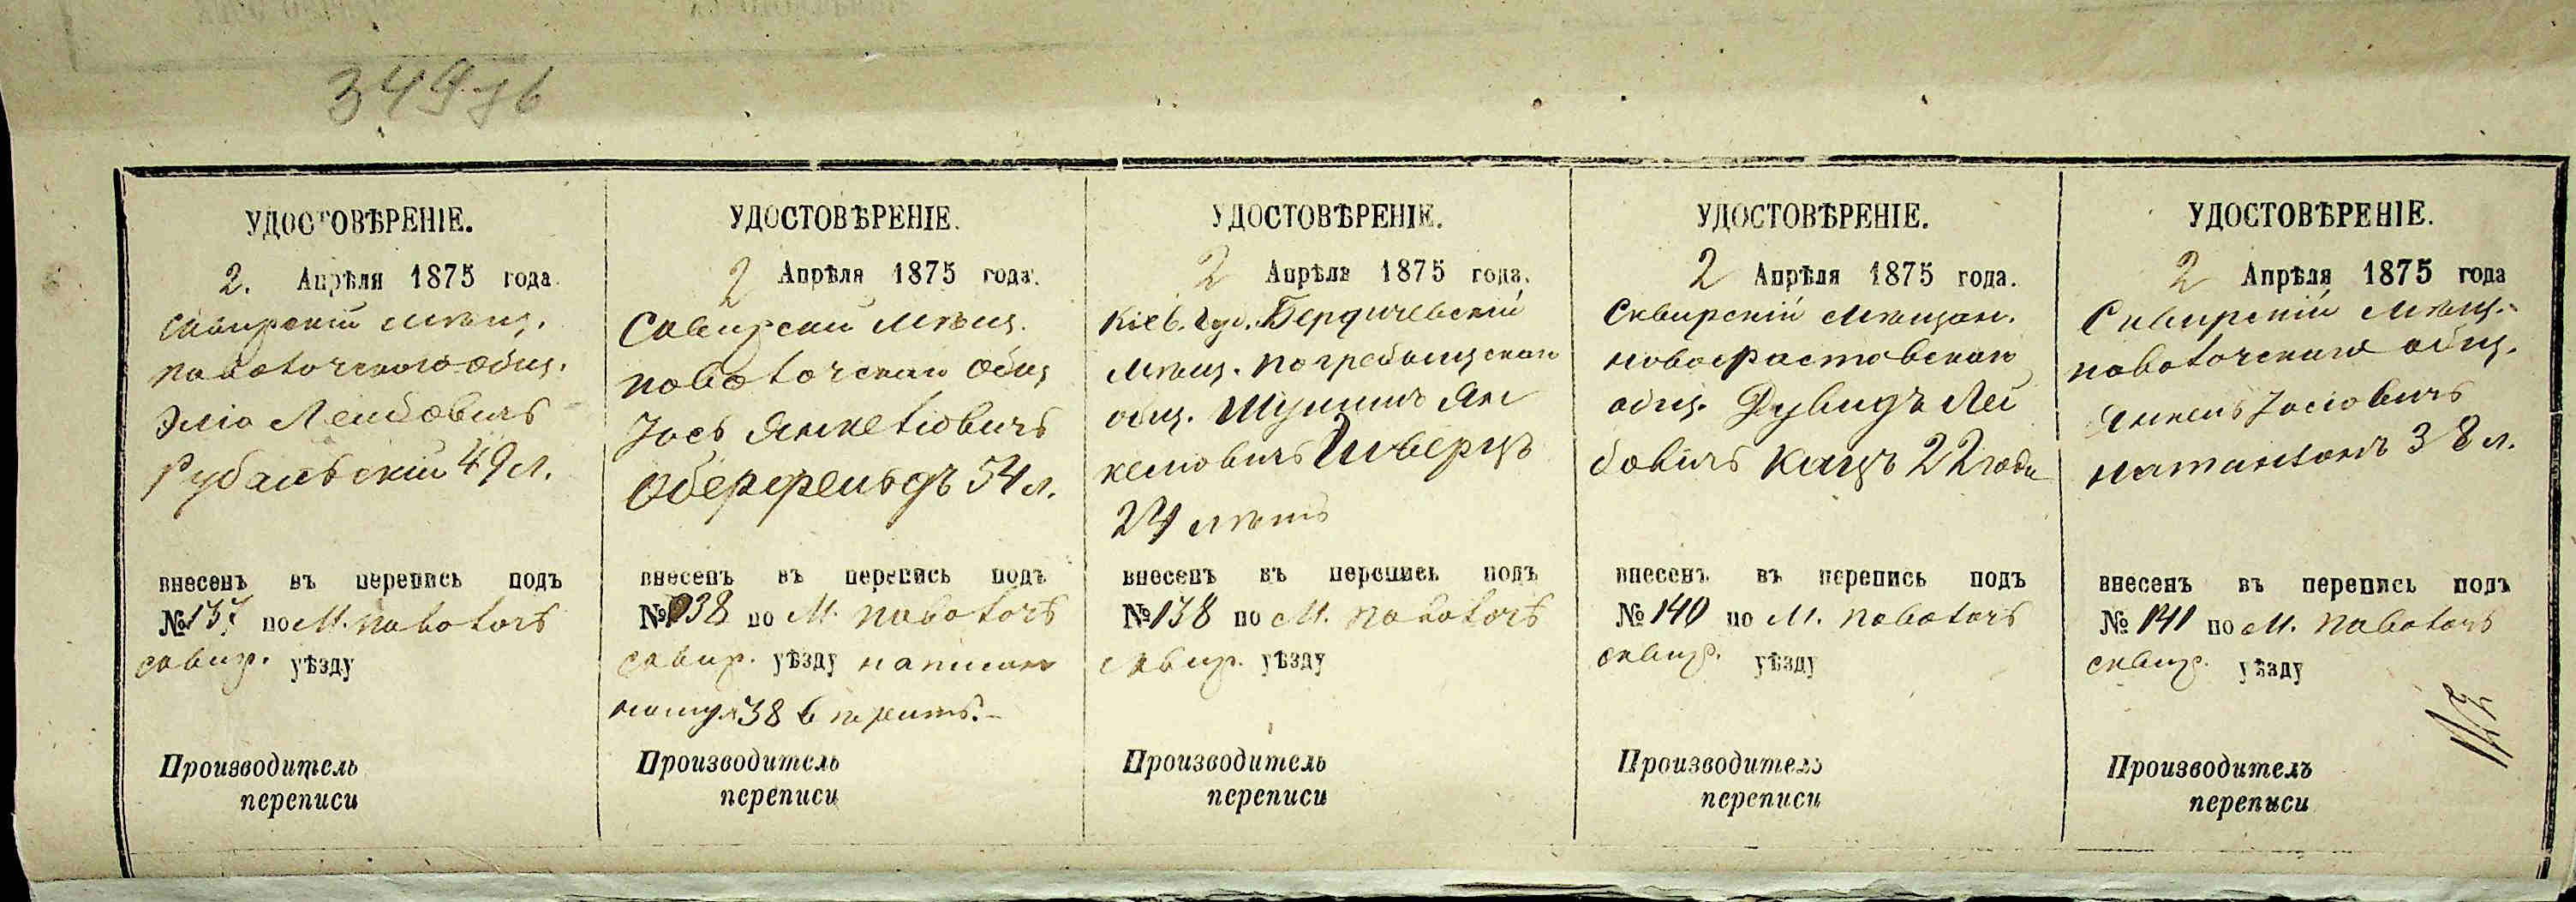 349
УДОСТОВѢРЕНІЕ.
2. Апрѣля 1875 года
Сквирскій мѣщ.
паволочскаго общ.
Эліо Лейбовичъ
Рубальскій 49 л.
внесенъ въ перепись подъ
№ 137 по М. Паволочь
сквир. уѣзду
Производитель
переписи
УДОСТОВѢРЕНІЕ.
2 Апрѣля 1875 года.
Сквирскій мѣщ.
паволочскаго общ
Іось Янкеліовичъ
Оберфельдъ 54 л.
внесенъ въ перепись подъ
№ 138 по М. Паволочь
сквир. уѣзду
Производитель
переписи
УДОСТОВѢРЕНІЕ.
2 Апрѣля 1875 года.
Кіев. Губ. Бердичевскій
мѣщ. погребищскаго
общ. Шулимъ Ян
келіовичъ Шверцъ
24 лѣтъ
внесенъ въ перепись подъ
№ 138 по М. Паволочь
сквир. уѣзду
Производитель
переписи
УДОСТОВѢРЕНІЕ.
2 Апрѣля 1875 года.
Сквирскій мѣщан.
новофастовскаго
общ. Дувидъ Лей
бовичъ Кацъ 22 года
внесенъ въ перепись подъ
№ 140 по М. Паволочь
сквир. уѣзду
Производитель
переписи
УДОСТОВѢРЕНІЕ.
2 Апрѣля 1875 года
Сквирскій мѣщ.
паволочскаго общ.
Янкель Іосіовичъ
Натанзонъ 38 л.
внесенъ въ перепись подъ
№ 141 по М. Паволочь
сквир. уѣзду
Производитель
переписи